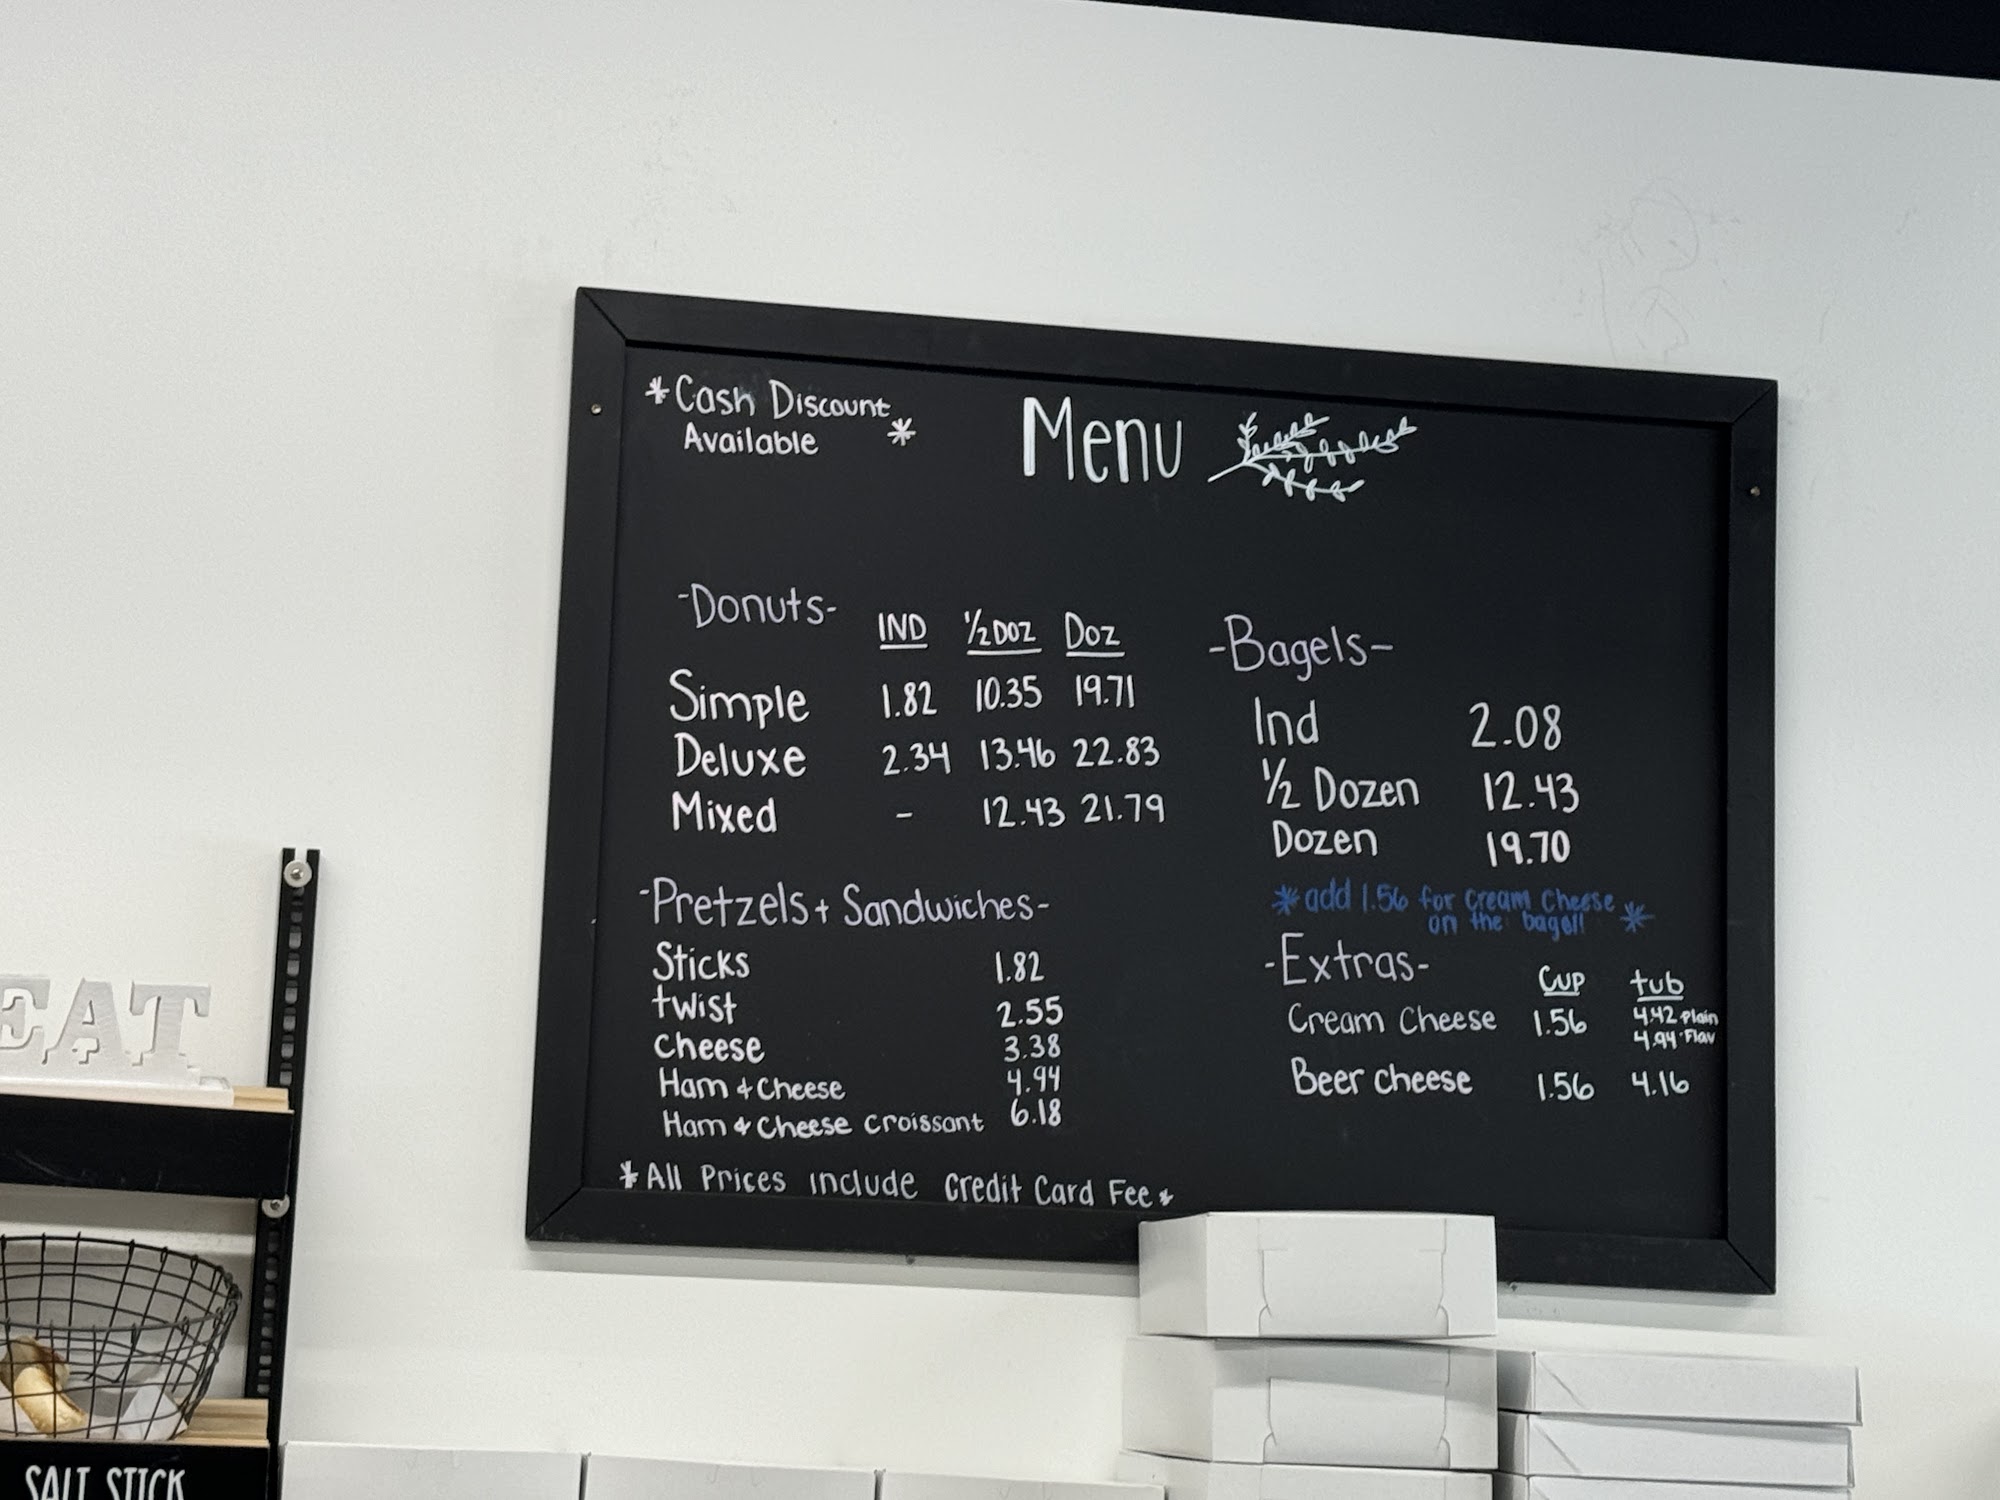 *Cash Discount
Available *
Menu
-Donuts- IND 1/2 DOZ Doz
Simple 1.82 10.35 19.71
Deluxe 2.34 13.46 22.83
Mixed - 12.43 21.79
-Pretzels + Sandwiches-
Sticks 1.82
twist 2.55
cheese 3.38
Ham & Cheese 4.94
Ham & Cheese croissant 6.18
*All Prices include Credit Card Fee*
-Bagels-
Ind 2.08
1/2 Dozen 12.43
Dozen 19.70
*add 1.56 for cream cheese
on the bagel! *
-Extras- Cup tub
Cream Cheese 1.56 4.42 Plain
4.94 Flav
Beer cheese 1.56 4.16
EAT
SALT STICK